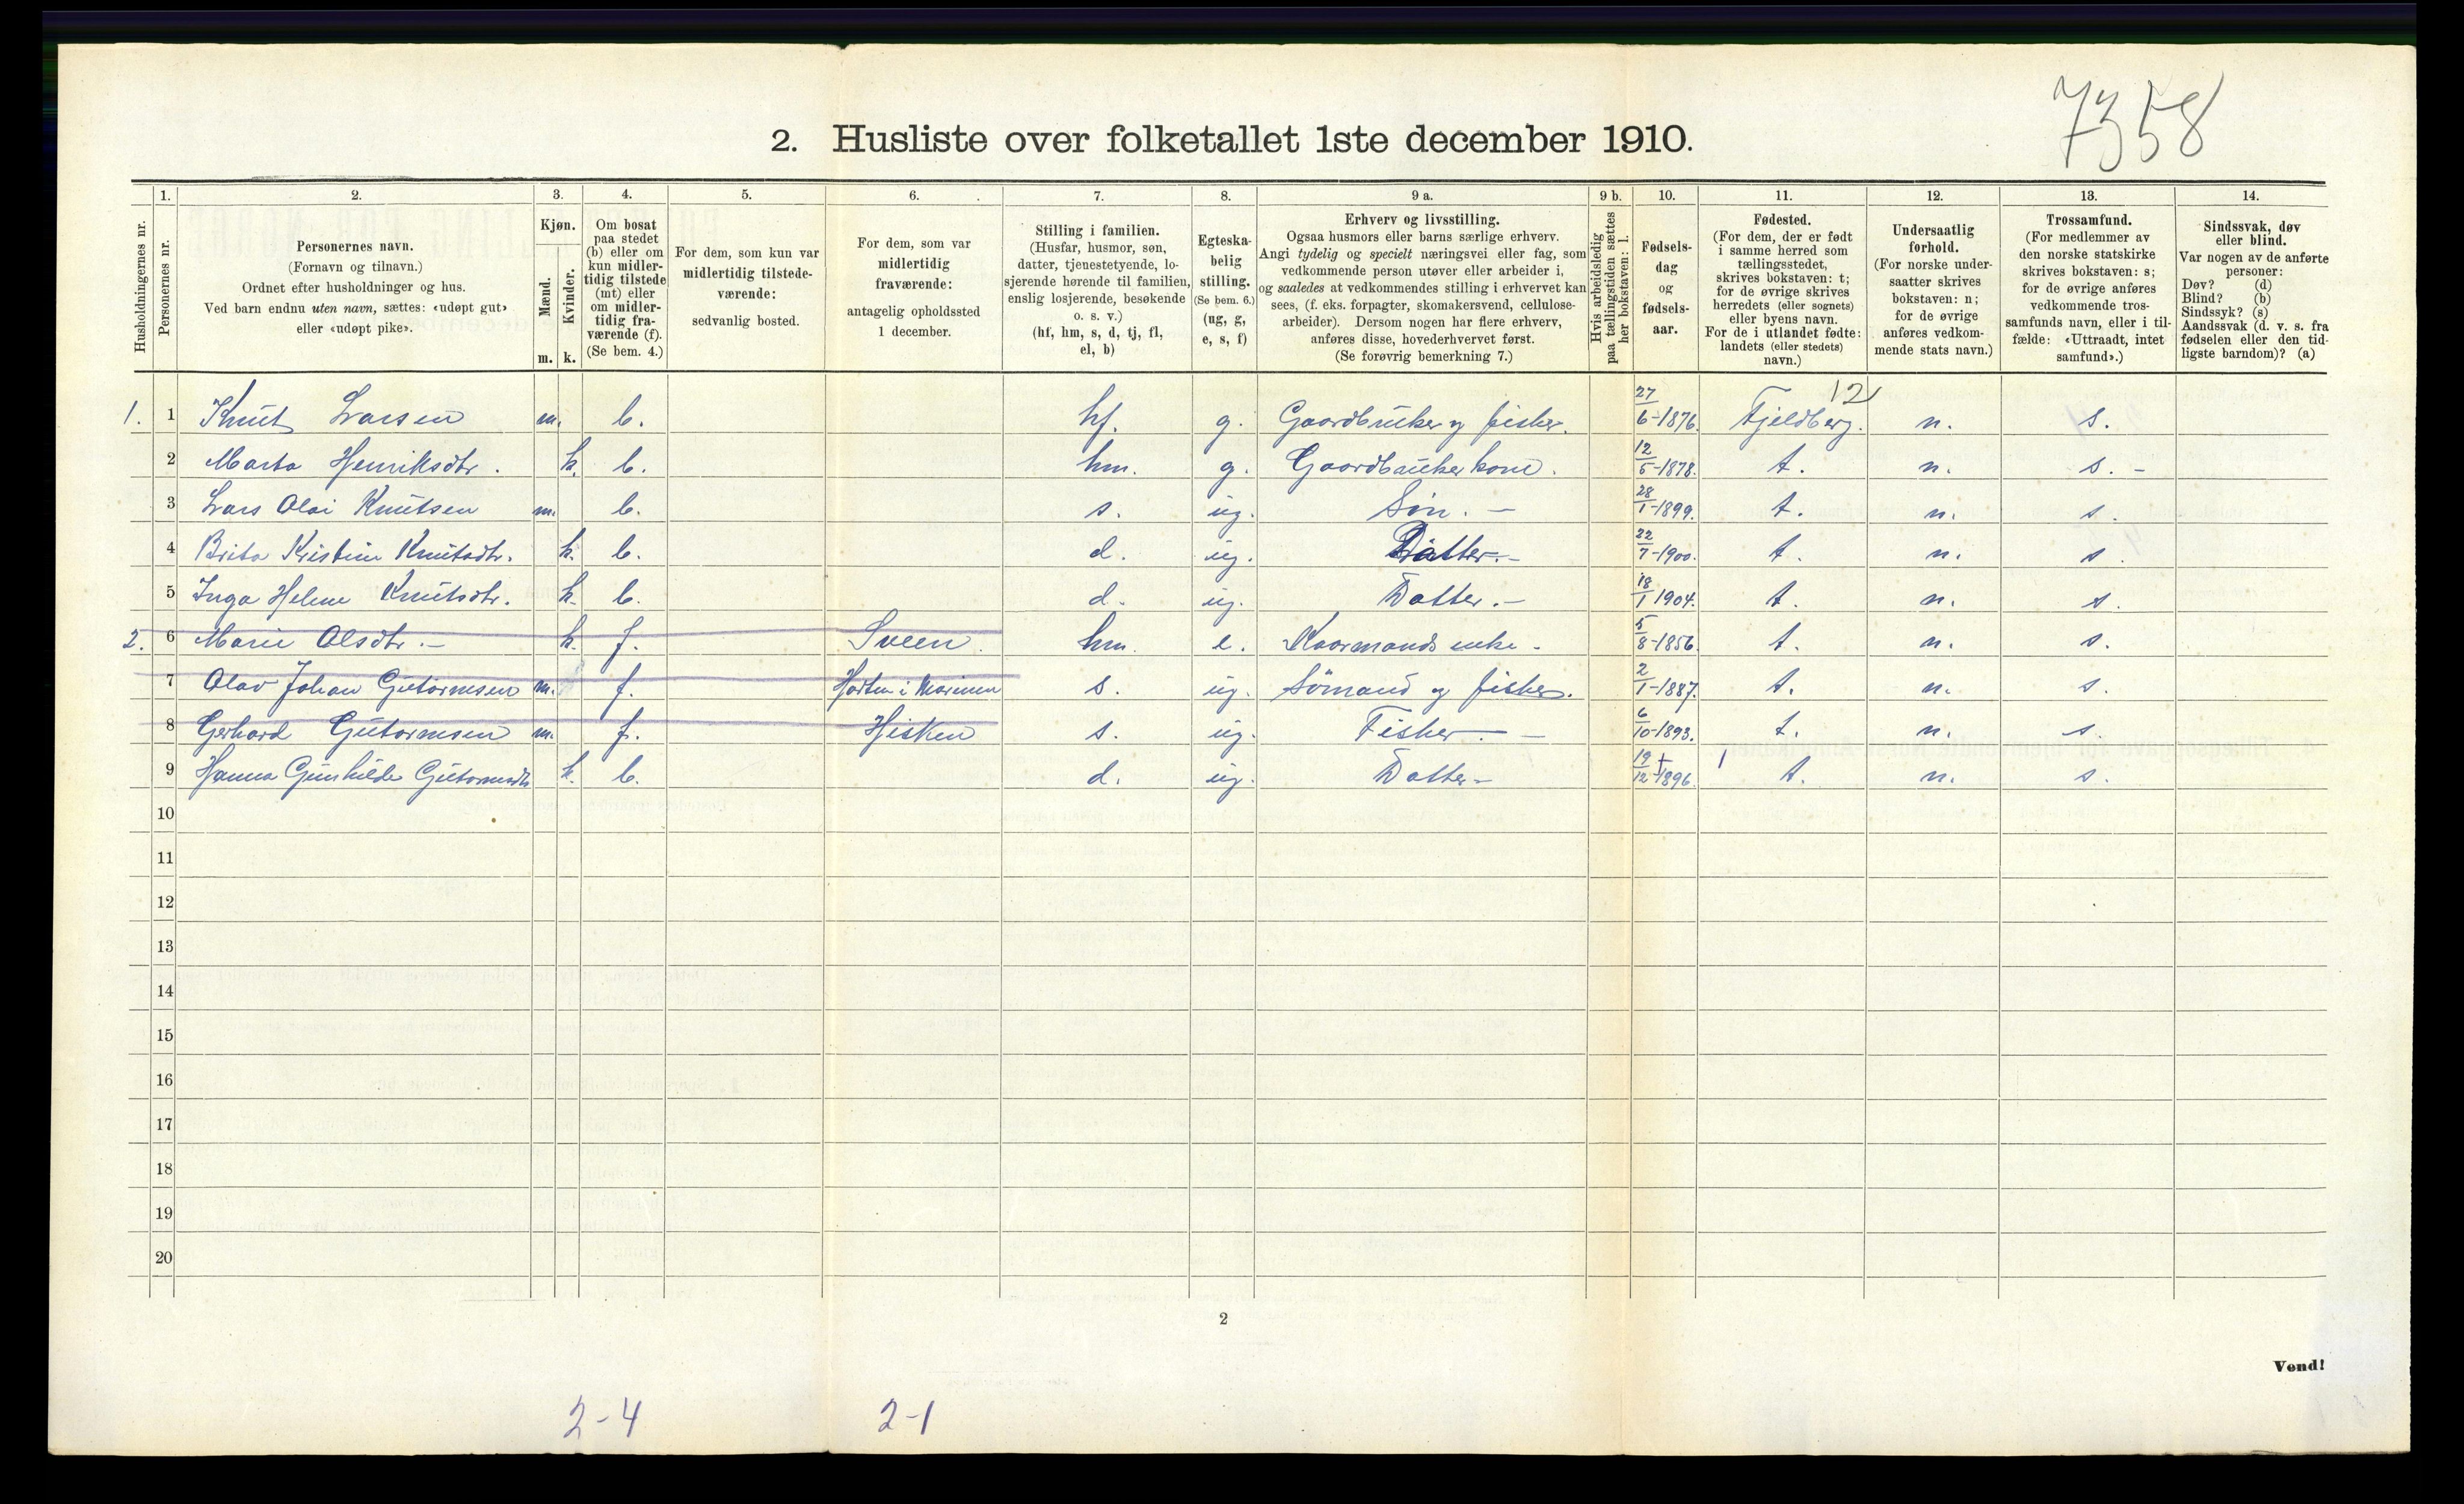 7358
2. Husliste over folketallet 1ste december 1910.
Husholdningernes nr.
1.
Personernes nr.
2.
Personernes navn.
(Fornavn og tilnavn.)
Ordnet efter husholdninger og hus.
Ved barn endnu uten navn, sættes: «udøpt gut»
eller «udøpt pike».
3.
Kjøn.
Mænd.
Kvinder.
m. k.
4.
Om bosat
paa stedet
(b) eller om
kun midler-
tidig tilstede
(mt) eller
om midler-
tidig fra-
værende (f).
(Se bem. 4.)
5.
For dem, som kun var
midlertidig tilstede-
værende:
sedvanlig bosted.
6.
For dem, som var
midlertidig
fraværende:
antagelig opholdssted
1 december.
7.
Stilling i familien.
(Husfar, husmor, søn,
datter, tjenestetyende, lo-
sjerende hørende til familien,
enslig losjerende, besøkende
o. s. v.)
(hf, hm, s, d, tj, fl,
el, b)
8.
Egteska-
belig
stilling.
(Se bem. 6.)
(ug, g,
e, s, f)
9 a.
Erhverv og livsstilling.
Ogsaa husmors eller barns særlige erhverv.
Angi tydelig og specielt næringsvei eller fag, som
vedkommende person utøver eller arbeider i,
og saaledes at vedkommendes stilling i erhvervet kan
sees, (f. eks. forpagter, skomakersvend, cellulose-
arbeider). Dersom nogen har flere erhverv,
anføres disse, hovederhvervet først.
(Se forøvrig bemerkning 7.)
9 b.
Hvis arbeidsledig
paa tællingstiden sættes
her bokstaven: l.
10.
Fødsels-
dag
og
fødsels-
aar.
11.
Fødested.
(For dem, der er født
i samme herred som
tællingsstedet,
skrives bokstaven: t;
for de øvrige skrives
herredets (eller sognets)
eller byens navn.
For de i utlandet fødte:
landets (eller stedets)
navn.)
12.
Undersaatlig
forhold.
(For norske under-
saatter skrives
bokstaven: n;
for de øvrige
anføres vedkom-
mende stats navn.)
13.
Trossamfund.
(For medlemmer av
den norske statskirke
skrives bokstaven: s;
for de øvrige anføres
vedkommende tros-
samfunds navn, eller i til-
fælde: «Uttraadt, intet
samfund».)
14.
Sindssvak, døv
eller blind.
Var nogen av de anførte
personer:
Døv? (d)
Blind? (b)
Sindssyk? (s)
Aandssvak (d. v. s. fra
fødselen eller den tid-
ligste barndom)? (a)
1. 1 Knut Larsen m. b. hf. g. Gaardbruker og fisker. 27/6-1876. Fjeldberg. 12 n. s.
2 Marta Henriksdtr. k. b. hm. g. Gaardbrukerkone. 12/5-1878. t. n. s. -
3 Lars Olai Knutsen m. b. s. ug. Søn. - 28/1-1899. t. n. s.
4 Brita Kristine Knutsdtr. k. b. d. ug. Datter. - 22/7-1900. t. n. s
5 Inga Helene Knutsdtr. k. b. d. ug. Datter. - 18/1 1904. t. n. s.
2. 6 Marie Olsdtr. - k. f. Sveen. hm. e. Kaarmands enke. 5/8-1856. t. n. s.
7 Olav Johan Gutormsen m. f. Horten i Marinen s. ug. Sømand og fisker. 2/1-1887. t. n. s.
8 Gerhard Gutormsen m. f. Hisken s. ug. Fisker. - 6/10-1893. t. n. s.
9 Hanna Gunhilde Gutormsdtr k. b. d. ug. Datter - 19/12-1896. t. n. s.
10
11
12
13
14
15
16
17
18
19
20
2
Vend!
2-4 2-1